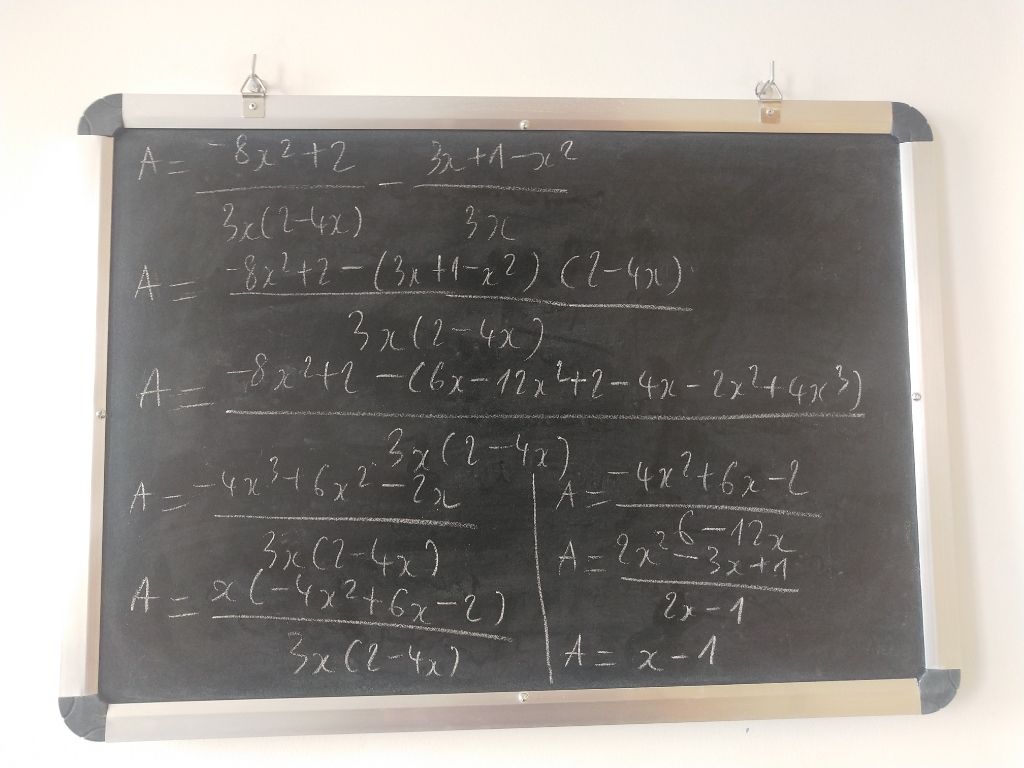 A = -8x²+2 / 3x(2-4x) - 3x+1-x² / 3x
A = -8x²+2-(3x+1-x²)(2-4x) / 3x(2-4x)
A = -8x²+2-(6x-12x²+2-4x-2x²+4x³) / 3x(2-4x)
A = -4x³+6x²-2x / 3x(2-4x)
A = x(-4x²+6x-2) / 3x(2-4x)
A = -4x²+6x-2 / 6-12x
A = 2x²-3x+1 / 2x-1
A = x-1